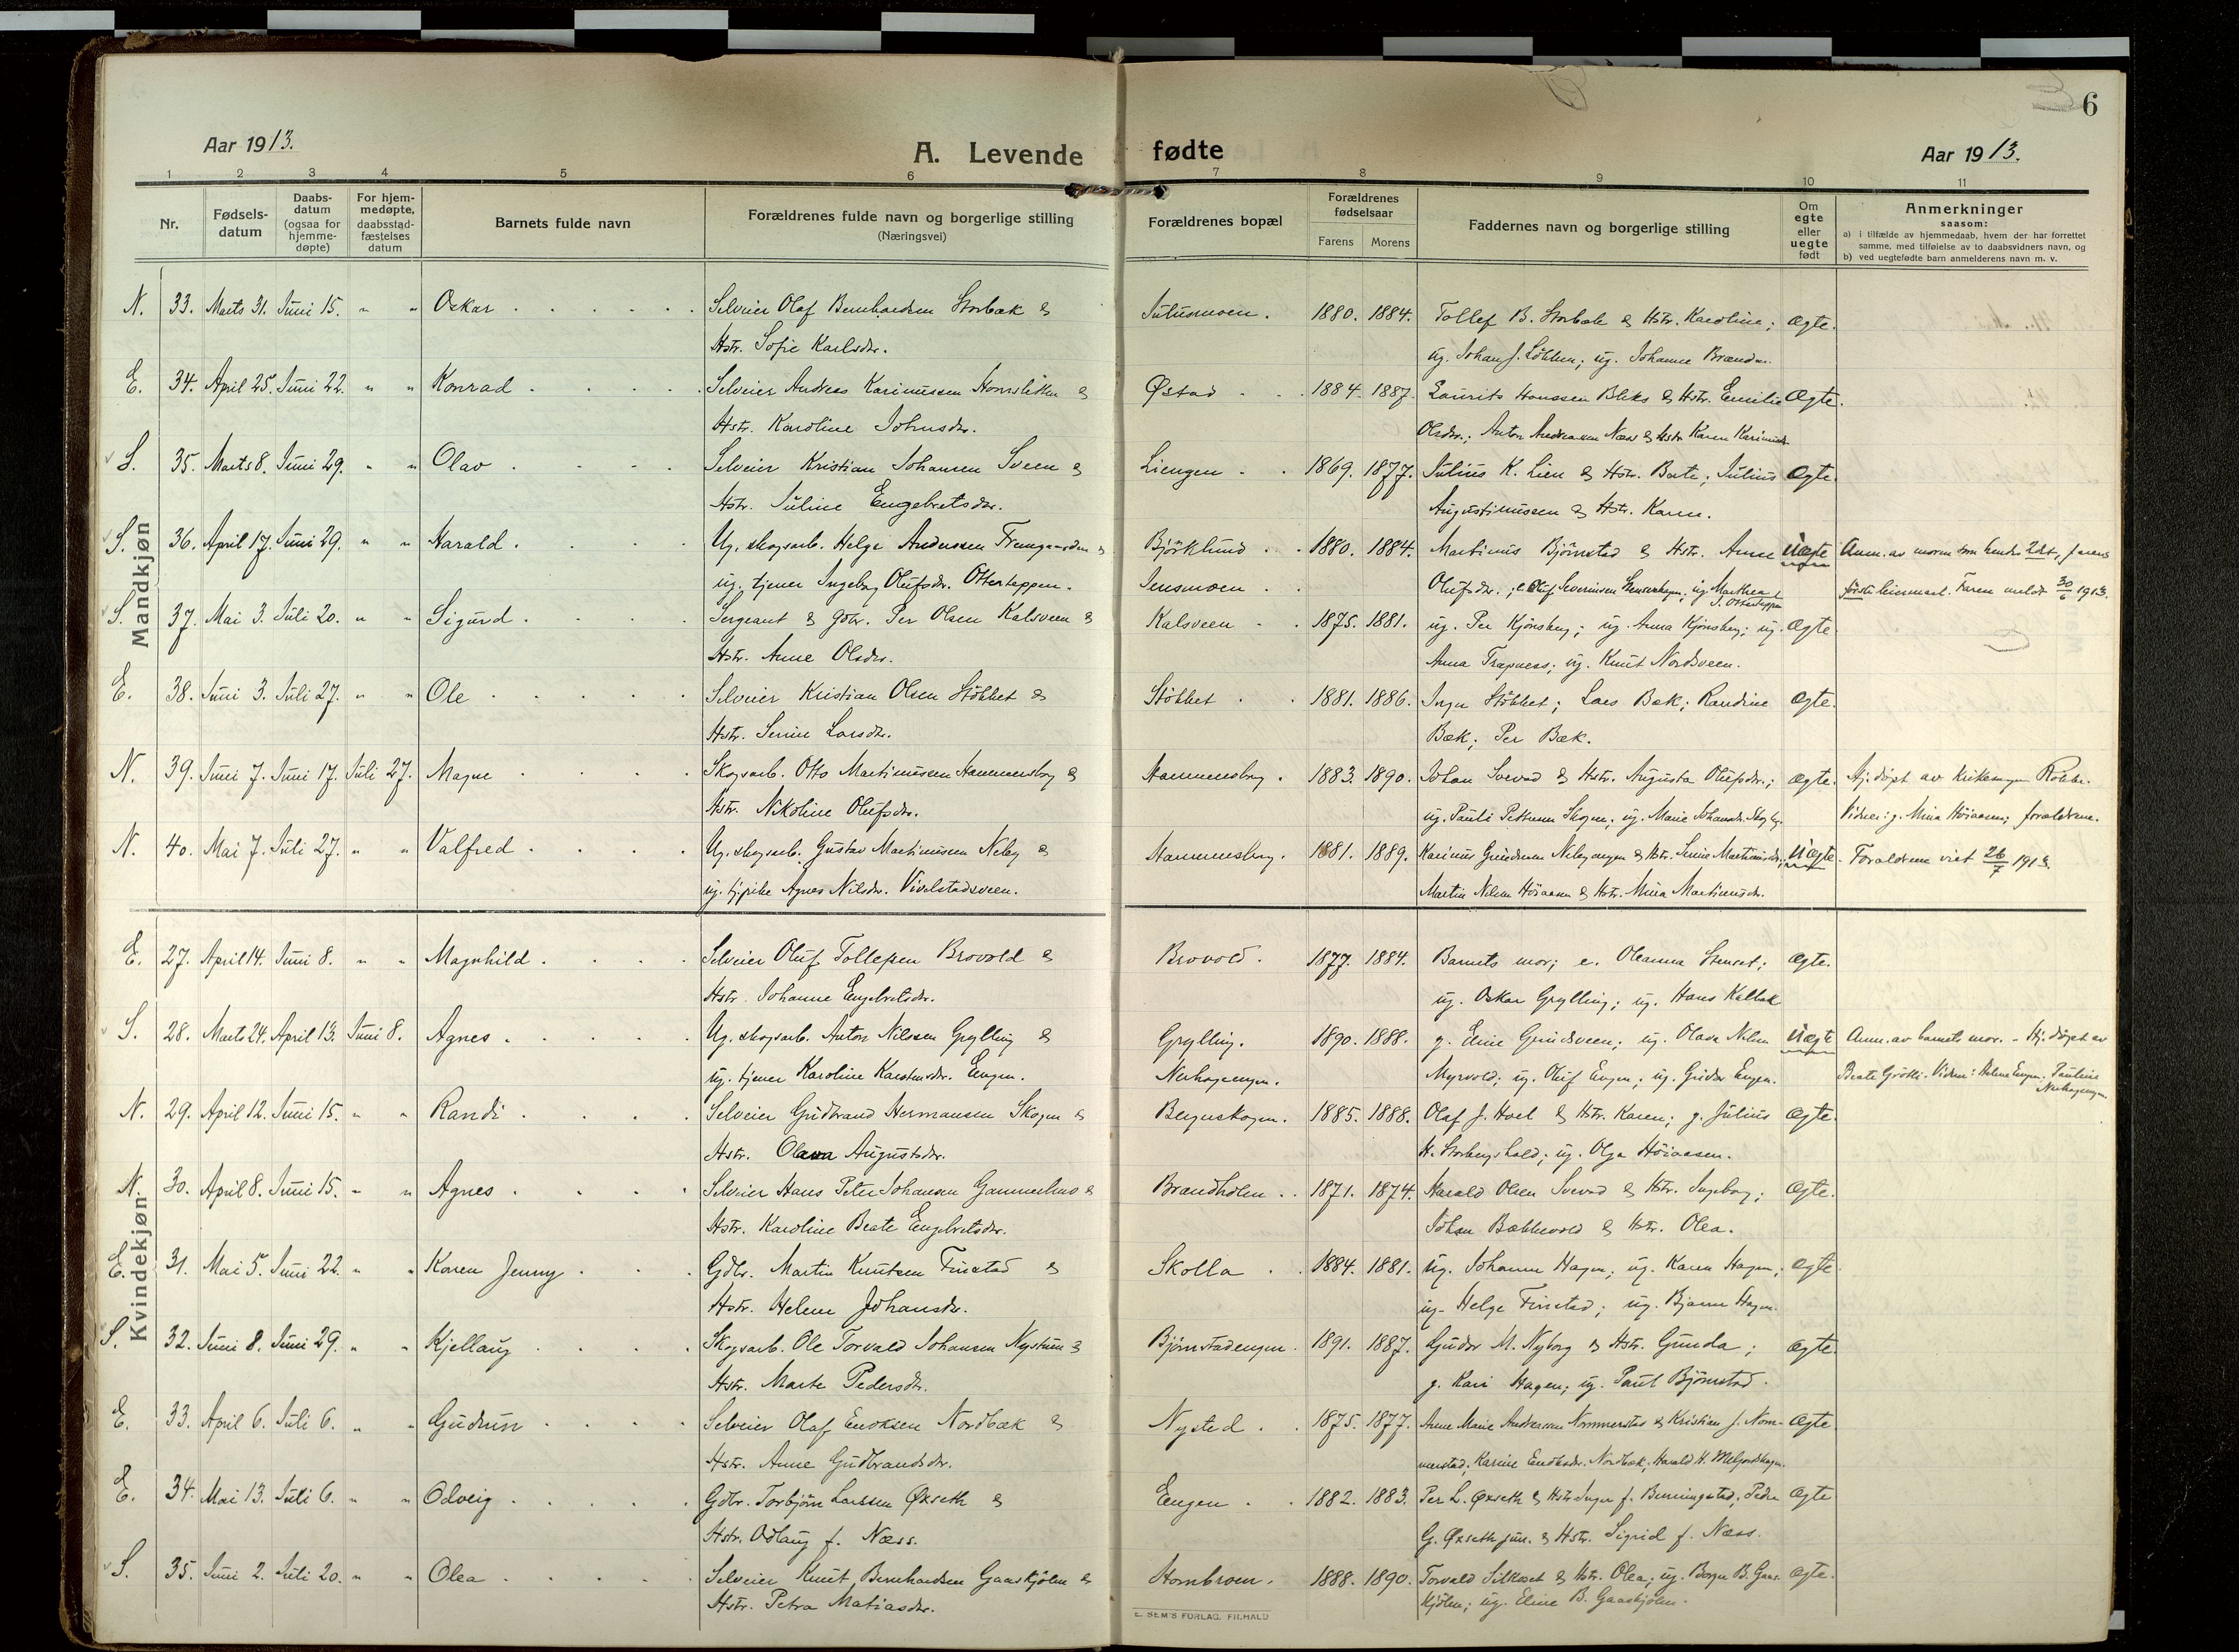 6
Aar 1913.
A. Levende fødte
Aar 1913.
1 2 3 4 5 6 7 8 9 10 11
Nr.
Fødsels-
datum
Daabs-
datum
(ogsaa for
hjemme-
døpte)
For hjem-
medøpte,
daabsstad-
fæstelses
datum
Barnets fulde navn
Forældrenes fulde navn og borgerlige stilling
(Næringsvei)
Forældrenes bopæl
Forældrenes
fødselsaar
Farens Morens
Faddernes navn og borgerlige stilling
Om
egte
eller
uegte
født
Anmerkninger
saasom:
a) i tilfælde av hjemmedaab, hvem der har forrettet
samme, med tilføielse av to daabsvidners navn, og
b) ved uegtefødte barn anmelderens navn m. v.
Mandkjøn
N. 33. Marts 31. Juni 15. " " Oskar Selveier Olaf Bernhardsen Storbæk & Julusmoen. 1880. 1884. Tollef B. Storbæk & Hstr. Karoline; Ægte.
Hstr. Sofie Karlsdr. ug. Johan J. Løkken; ug. Johanne
E. 34. April 25. Juni 22. " " Konrad Selveier Andreas Karinussen & Østad 1884. 1887. Laurits Hanssen Bleks & Hstr. Emilie Ægte.
Hstr. Karoline Johnsdr. Olsdr.; Anton Andreassen Næss & Hstr. Karen
S. 35. Marts 8. Juni 29. " " Olav Selveier Kristian Johansen Sveen & Liengen 1869. 1877. Julius K. Lien & Hstr. Berte; Julius Ægte.
Hstr. Juline Engebretsdr. Augustinussen & Hstr. Karen.
S. 36. April 17. Juni 29. " " Harald. Ug. skogsarb. Helge Anderssen & Bjørklund 1880. 1884. Martinus Bjørnstad & Hstr. Anne Uægte Anm. av moren som hendes 2det, farens
ug. tjener Ingeborg Olufsdr. Ottertappen. Jensmoen Olufsdr.; e. Oluf Severinsen ug. Marthea J. Ottertappen første leiermaal. Faren meldt 30/6 1913.
S. 37. Mai 3. Juli 20. " " Sigurd. Sergeant & gbr. Per Olsen Kalsveen & Kalsveen 1875. 1881. ug. Per Kjønsberg; ug. Anna Kjønsberg; ug. Ægte.
Hstr. Anne Olsdr. Anna Trapness; ug. Knut Nordsveen.
E. 38. Juni 3. Juli 27. " " Ole Selveier Kristian Olsen Støkket & Støkket 1881. 1886. Inga Støkket; Lars Bæk; Randine Ægte.
Hstr. Serine Larsdr. Bæk; Per Bæk.
N. 39. Juni 7. Juni 17. Juli 27. Magne Skogsarb. Otto Martinussen Hammersberg & Hammersberg. 1883. 1890. Johan Svevad & Hstr. Augusta Olufsdr.; Ægte. Hj. døpt av
Hstr. Nikoline Olufsdr. ug. Pauli Pettersen Skogen; ug. Marie Johansdr. Vidner: g. Mina Høiaasen; forældrene.
N. 40. Mai 7. Juli 27. " " Valfred Ug. skogsarb. Gustav Martinussen Neby & Hammersberg. 1881. 1889. Karinus Gundersen Nebyengen & Hstr. Serine Martinusdr.; Uægte Forældrene viet 26/7 1913.
ug. tj.pike Agnes Nilsdr. Vivelstadsveen. Martin Nilsen Høiaasen & Hstr. Mina Martinusdr.
Kvindekjøn
E. 27. April 14. Juni 8. " " Magnhild Selveier Oluf Tollefsen Brovold & Brovold. 1877. 1884. Barnets mor; e. Oleanna Stenset; Ægte.
Hstr. Johanne Engebretsdr. ug. Oskar Grylling; ug. Hans Kalbæk
S. 28. Marts 24. April 13. Juni 8. Agnes Ug. skogsarb. Anton Nilssen Grylling & Grylling. 1890. 1888. g. Eline Grindsveen; ug. Olava Nilsen Uægte Anm. av barnets mor. - Hj. døpt av
ug. tjener Karoline Karstensdr. Engen. Nerhagengen. Myrvold; ug. Oluf Engen; ug. Gudor Engen. Beate Grøtli. Vidner: Helene Engen. Pauline
Nerhagengen.
N. 29. April 12. Juni 15. " " Randi Selveier Gudbrand Hermansen Skogen & Bergeskogen. 1885. 1888. Olaf J. Hoel & Hstr. Karen; g. Julius Ægte.
Hstr. Olava Augustsdr. H. Storbergshald; ug. Olga Høiaasen.
N. 30. April 8. Juni 15. " " Agnes Selveier Hans Peter Johansen Gammelhus & Brandholen 1871. 1874. Harald Olsen Svevad & Hstr. Ingeborg; Ægte.
Hstr. Karoline Beate Engebretsdr. Johan Bækkevold & Hstr. Olea.
E. 31. Mai 5. Juni 22. " " Karen Jenny Gdbr. Martin Knutsen Finstad & Skolla 1884. 1881. ug. Johanne Hagen; ug. Karen Hagen; Ægte
Hstr. Helene Johansdr. ug. Helge Finstad; ug. Bjarne Hagen.
S. 32. Juni 8. Juni 29. " " Kjellaug Skogsarb. Ole Torvald Johansen Nystuen & Bjørnstadengen. 1891. 1887. Gudor M. Nyborg & Hstr. Gunda; Ægte.
Hstr. Marte Pedersdr. g. Kari Hagen; ug. Paul Bjørnstad.
E. 33. April 6. Juli 6. " " Gudrun Selveier Olaf Enoksen Nordbæk & Nysted 1875. 1877. Anne Marie Andersen Nommerstad & Kristian J. Nom- Ægte.
Hstr. Anne Gudbrandsdr. merstad; Karine Enoksdr. Nordbæk; Harald H.
E. 34. Mai 13. Juli 6. " " Odveig Gdbr. Torbjørn Larssen Øxseth & Engen 1882. 1883. Per L. Øxseth & Hstr. Inger f. Peder Ægte
Hstr. Odlaug f. Næss. G. Øxseth jun. & Hstr. Sigrid f. Næss.
S. 35. Juni 2. Juli 20. " " Olea Selveier Knut Bernhardsen Gaaskjølen & Hornbroen. 1888. 1890. Torvald Silkoset & Hstr. Olea; ug. Borger B. Gaas- Ægte.
Hstr. Petra Matiasdr. kjølen; ug. Eline B. Gaaskjølen.
E. SEM'S FORLAG, FR.HALD